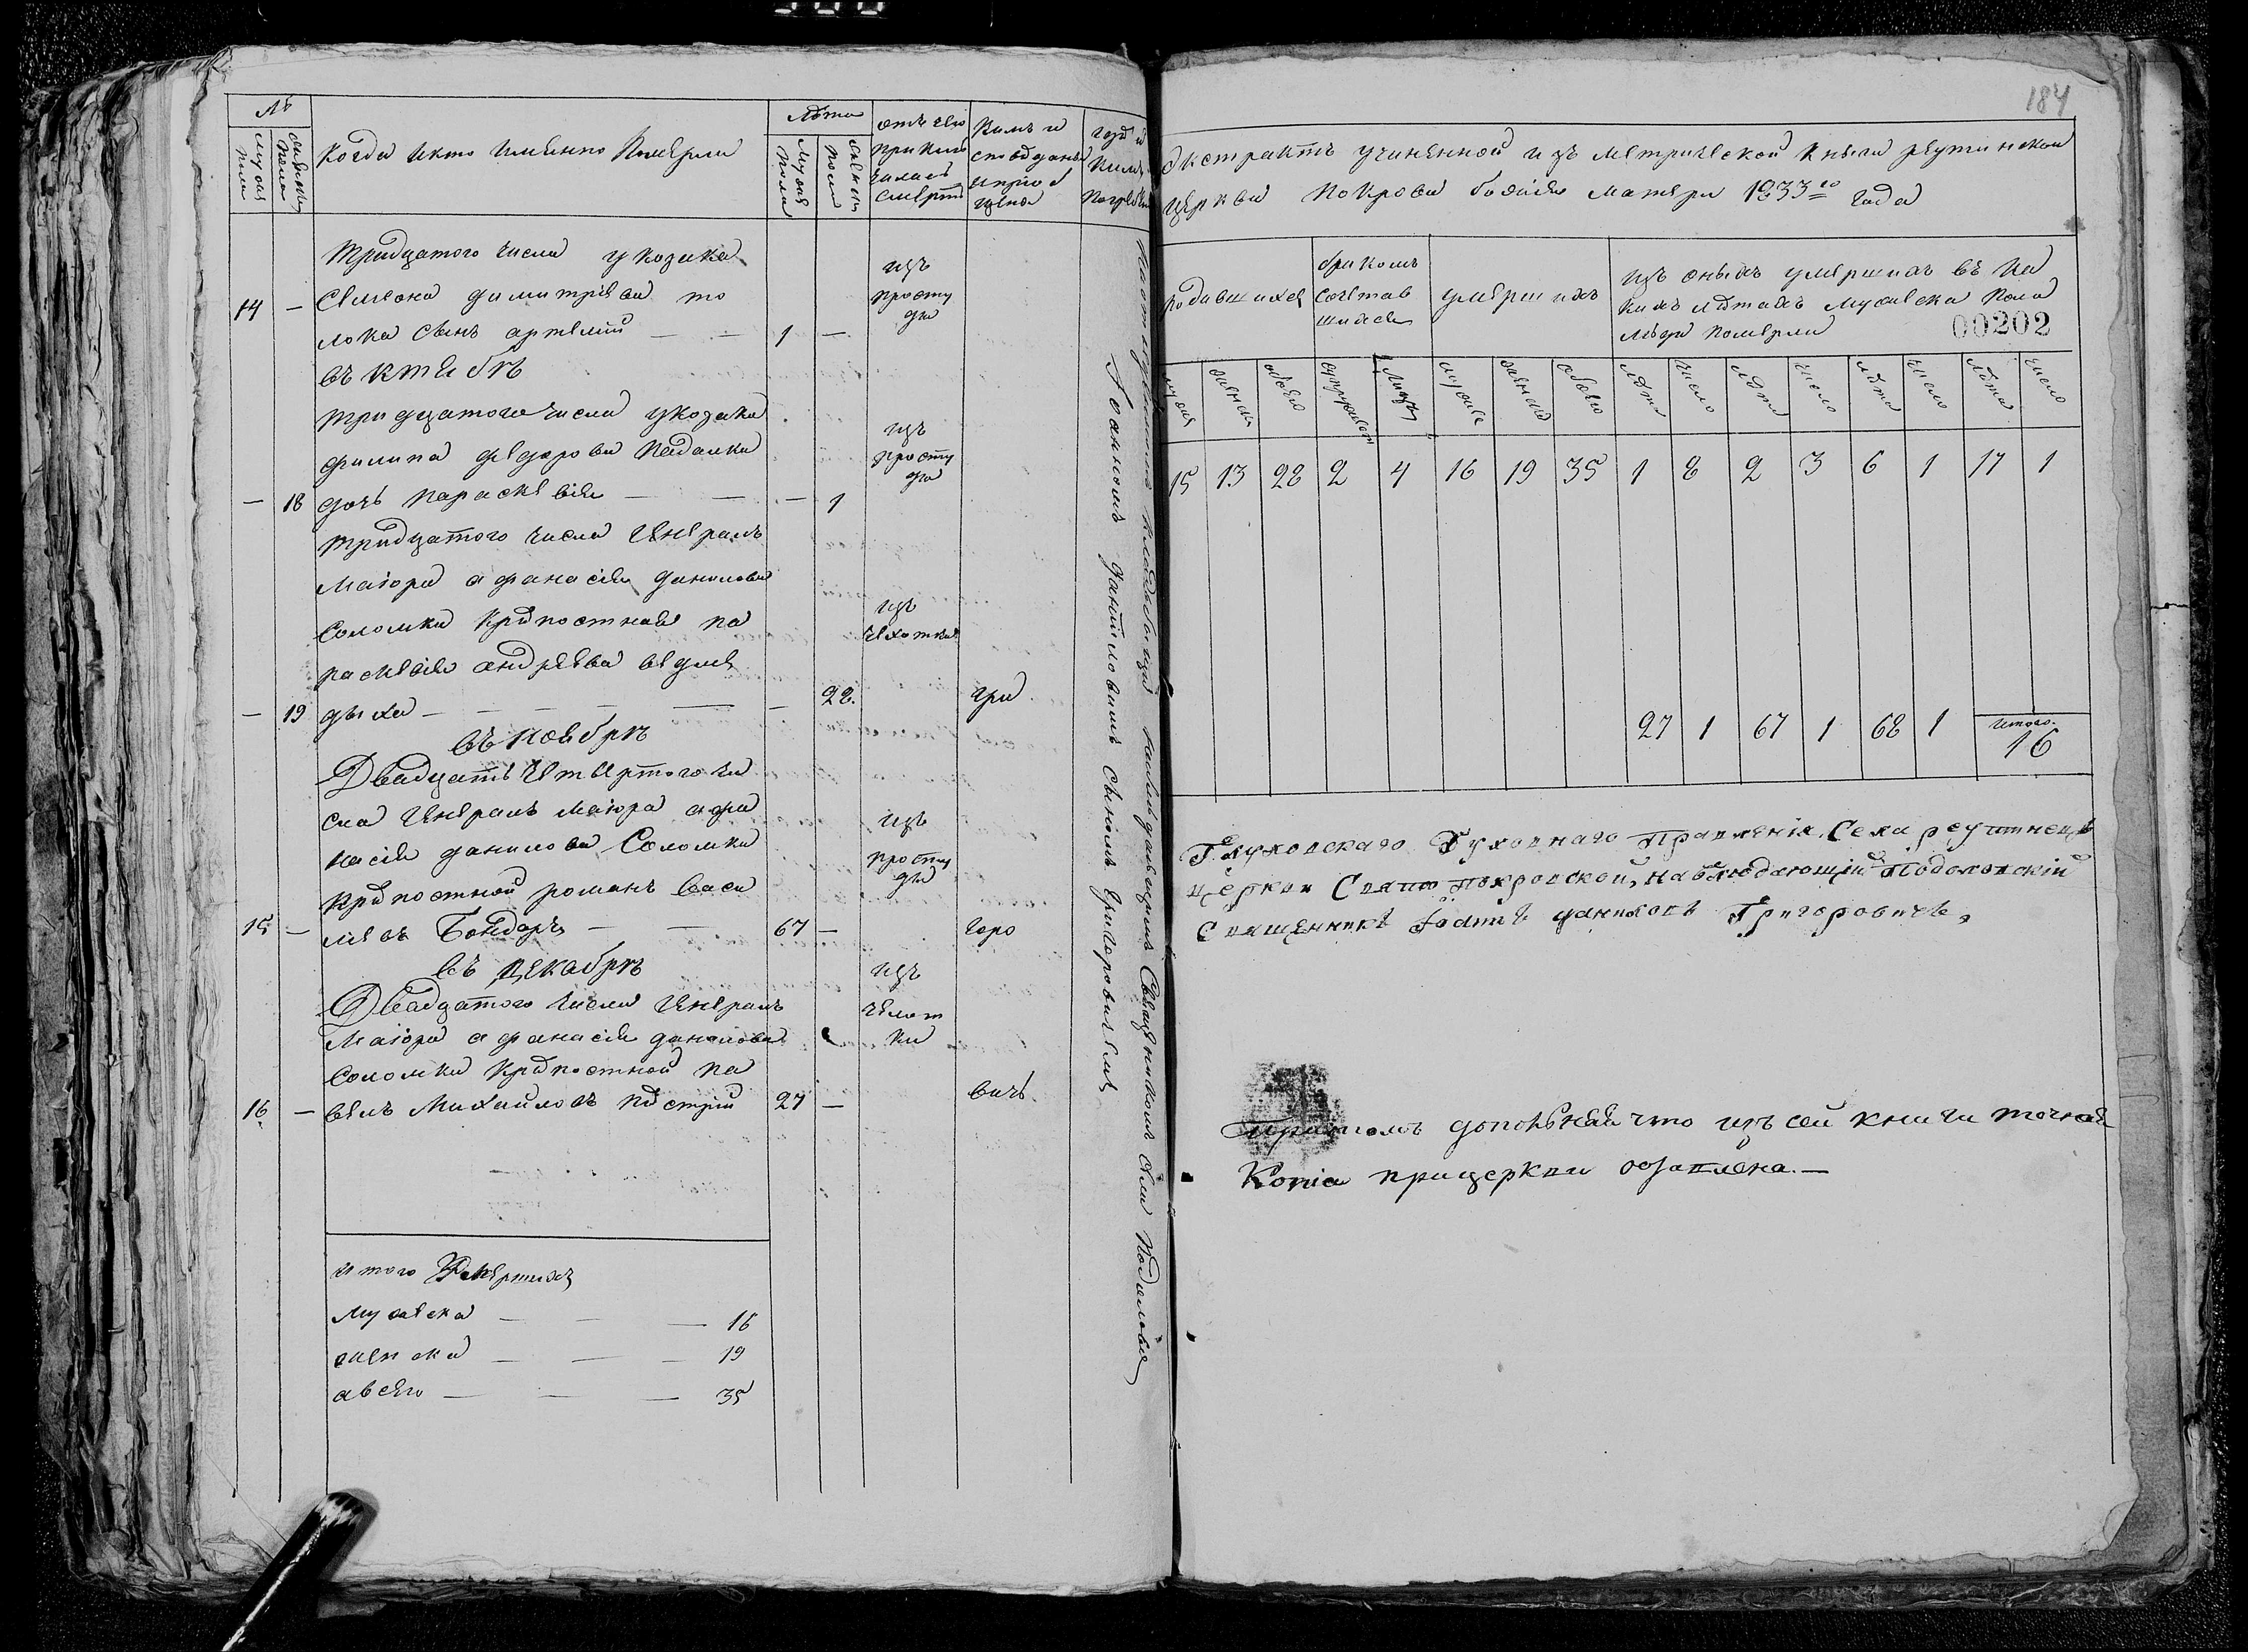 №
мужеска пола
женска пола
Когда и кто именно Померли
лѣта
мужеска пола
женска пола
отъ чего
приклю
чилась
смерть
Кемъ и
споведаны
и приоб
щены
гдѣ и
Кемъ
погребены
тридцатого числа у козака
14 — Семеона димитріева то
лока сынъ артемій — — 1 —
изъ
просту
ды
въ Ктябрѣ
тридцатого числа у козака
филипа федорова
— 18 дочь параскевія — — — 1
изъ
просту
ды
тридцатого числа Генералъ
Маіора афанасія данилова
Соломки Крѣпостная па
раскевія андреева
— 19 — — — — — 28.
изъ
чехотки
гри
въ ноябрѣ
Двадцать четвертого чи
сла Генералъ Маіора афа
насія данилова Соломки
крѣпостной романъ васи
15 — левъ Бондарь — — 67 —
изъ
просту
ды
горо
въ декабрѣ
Двадцатого числа Генералъ
Маіора афанасія данилова
Соломки Крѣпостной па
16. — велъ Михайловъ 27 —
изъ
чехот
ки
вичь.
итого Умершихъ
мужеска — — — 16
женска — — — 19
а всего — — — 35
Священникомъ
Іоанномъ даниловимъ Сыномъ Григоровичемъ
184
Экстрактъ учиненной изъ Метрической Книги реутинской
церкви Покрова божія матери 1833го года
родившихся
бракомъ
сочетав
шихся
умершихъ
изъ оныхъ умершихъ въ ка
кихъ лѣтахъ мужеска пола
люди померли
00202
мужеска женска обоего супружест лицъ мужеска женска обоего лѣта число лѣта число лѣта число лѣта число
15 13 28 2 4 16 19 35 1 8 2 3 6 1 17 1
27 1 67 1 68 1 итого.
16
Глуховскаго Духовнаго Правленія Села реутинецъ
церкви Свято Покровской, наблюдающій
Священникъ Іоаннъ даниловъ Григоровичъ,
притомъ дополняя что изъ сей книги точная
Копія прицеркви оставлена. —